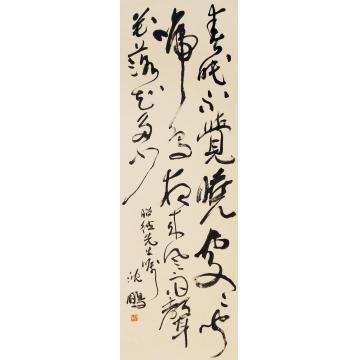 春眠不覺曉處々聞
啼鳥夜来风雨聲
花落知多少
先生嘱
沈鵬